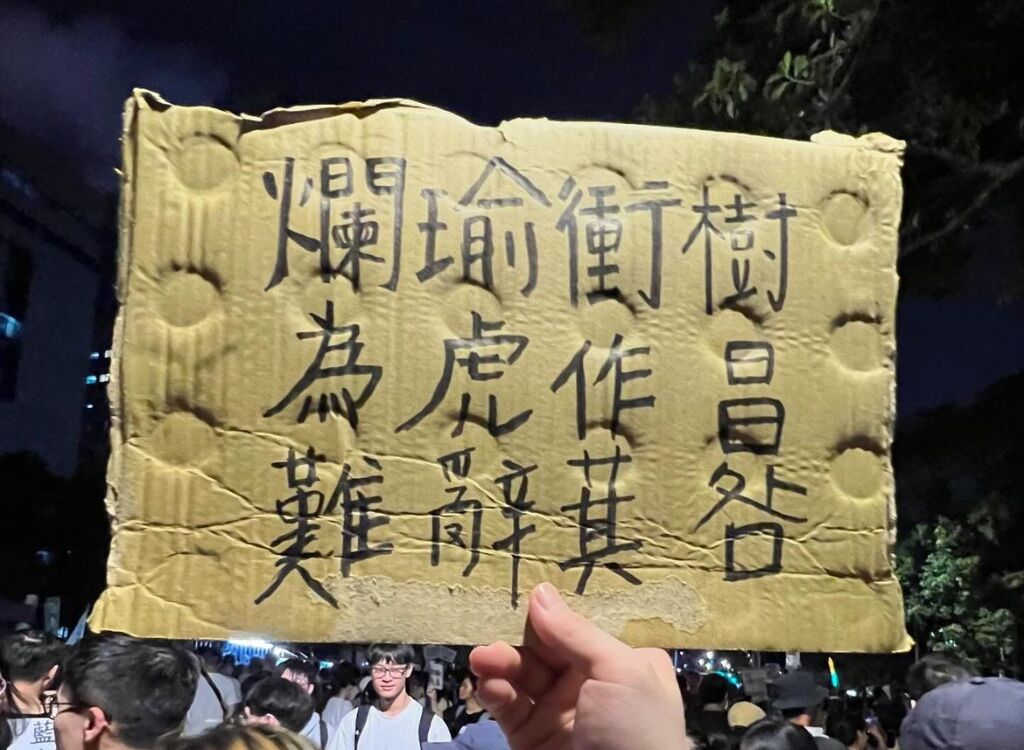 爛瑜衝樹
為虎作昌
難辭其咎
藍